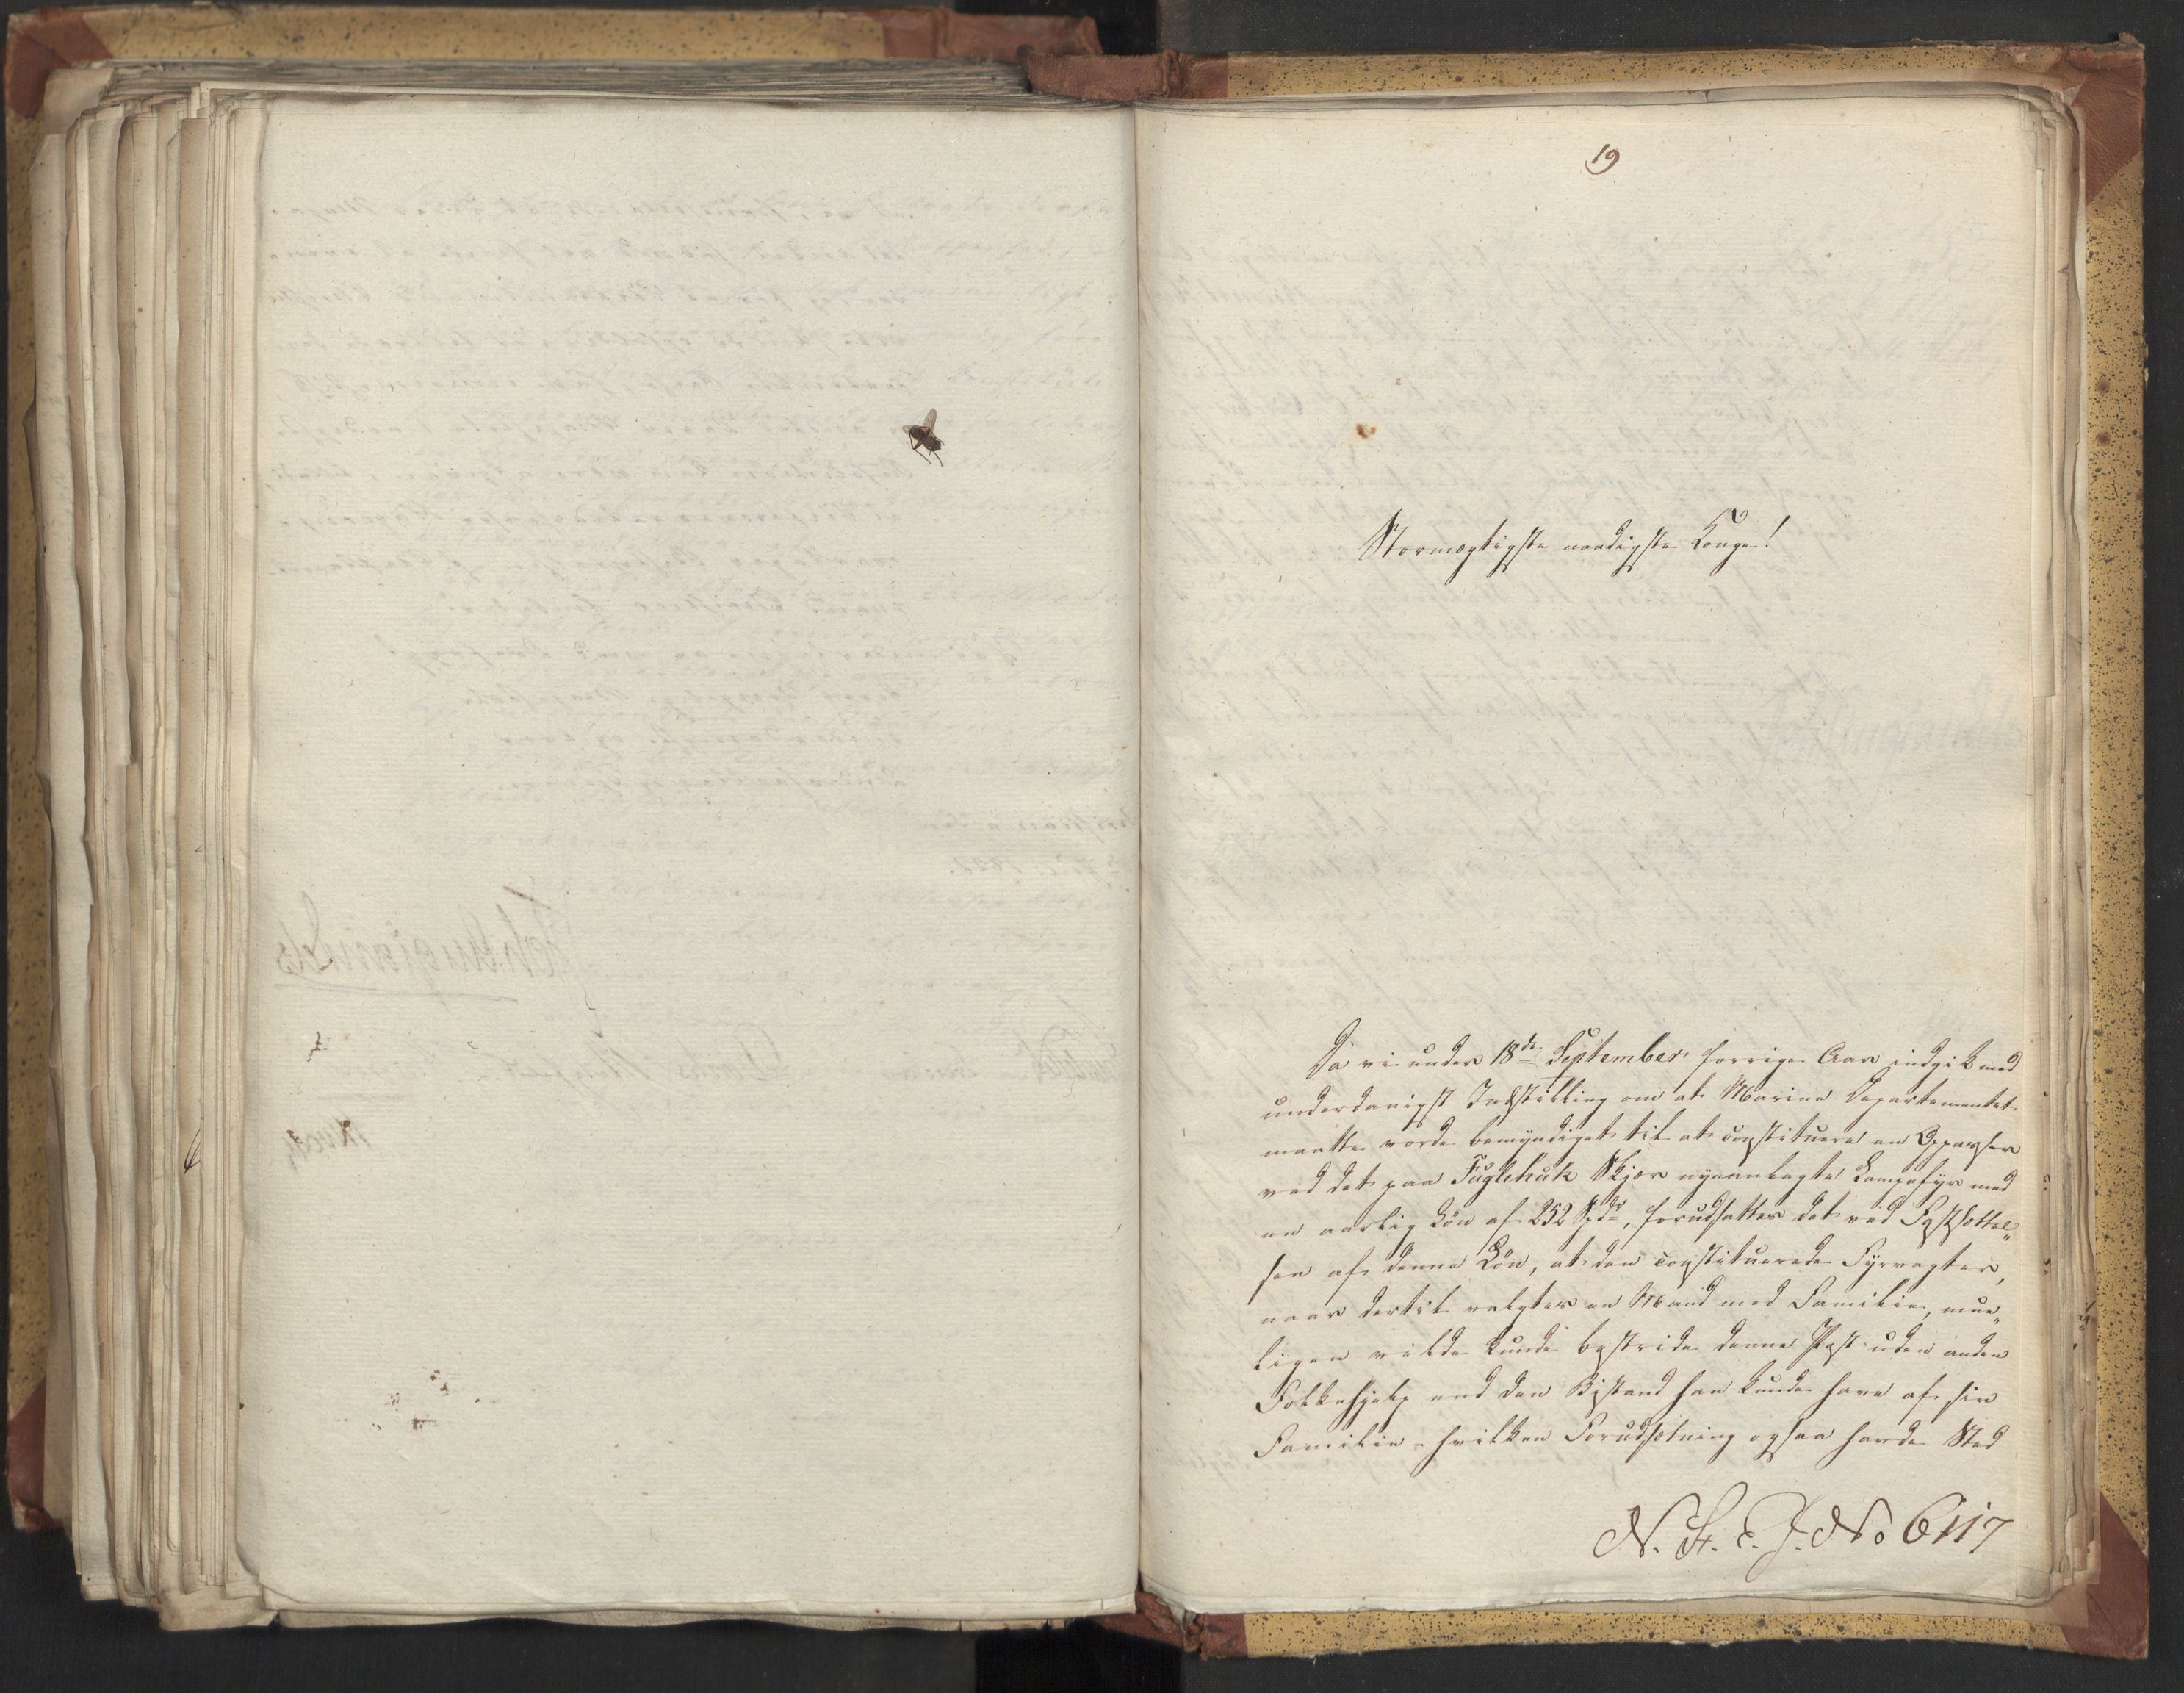 19
Stormægtigste naadigste Konge!
Da vi under 18de September forrige Aar indgik med
underdanigst Indstilling om at Marine Departementet
maatte vorde bemyndiget til at constituere en Oppasser
ved det paa Fuglehuk Skjær nyeanlagte Lampefyr med
en aarlig Lön af 252 Spdr, forudsattes det ved Fastsættel„
sen af denne Lön, at den constituerede Fyrvogter,
naar dertil valgtes en Mand med Familie, mue„
ligen vilde kunde bestride denne Post uden anden
Folkehjelp end den Bistand han kunde have af sin
Familie - hvilken Forudsætning ogsaa havde Sted
N. St. E. J. No 6117